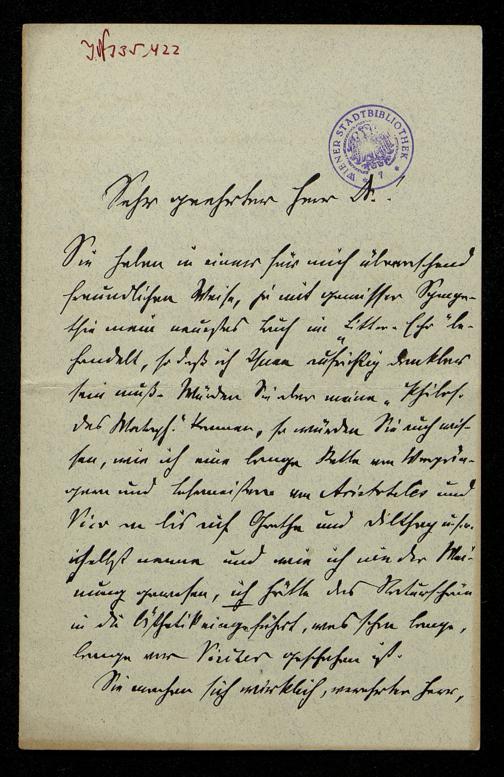 JN 135.422
WIENER STADTBIBLIOTHEK
Sehr geehrter Herr Dr.!
Sie haben in einer für mich überraschend
freundlichen Weise, ja mit gewisser Sympa-
thie mein neuestes Buch im "Litter. Echo" be-
handelt, so daß ich Ihnen aufrichtig dankbar
sein muß. Würden Sie aber meine "Philos.
des Metaph." kennen, so würden Sie auch wis-
sen, wie ich eine lange Kette von
und von Aristoteles und
Vico an bis auf Goethe und Dilthey u.s.w.
selbst nenne und wie ich nie der Mei-
nung gewesen, ich hätte das Naturschöne
in die Ästhetik eingeführt, was schon lange,
lange vor geschehen ist.
Sie machen sich wirklich, verehrter Herr,